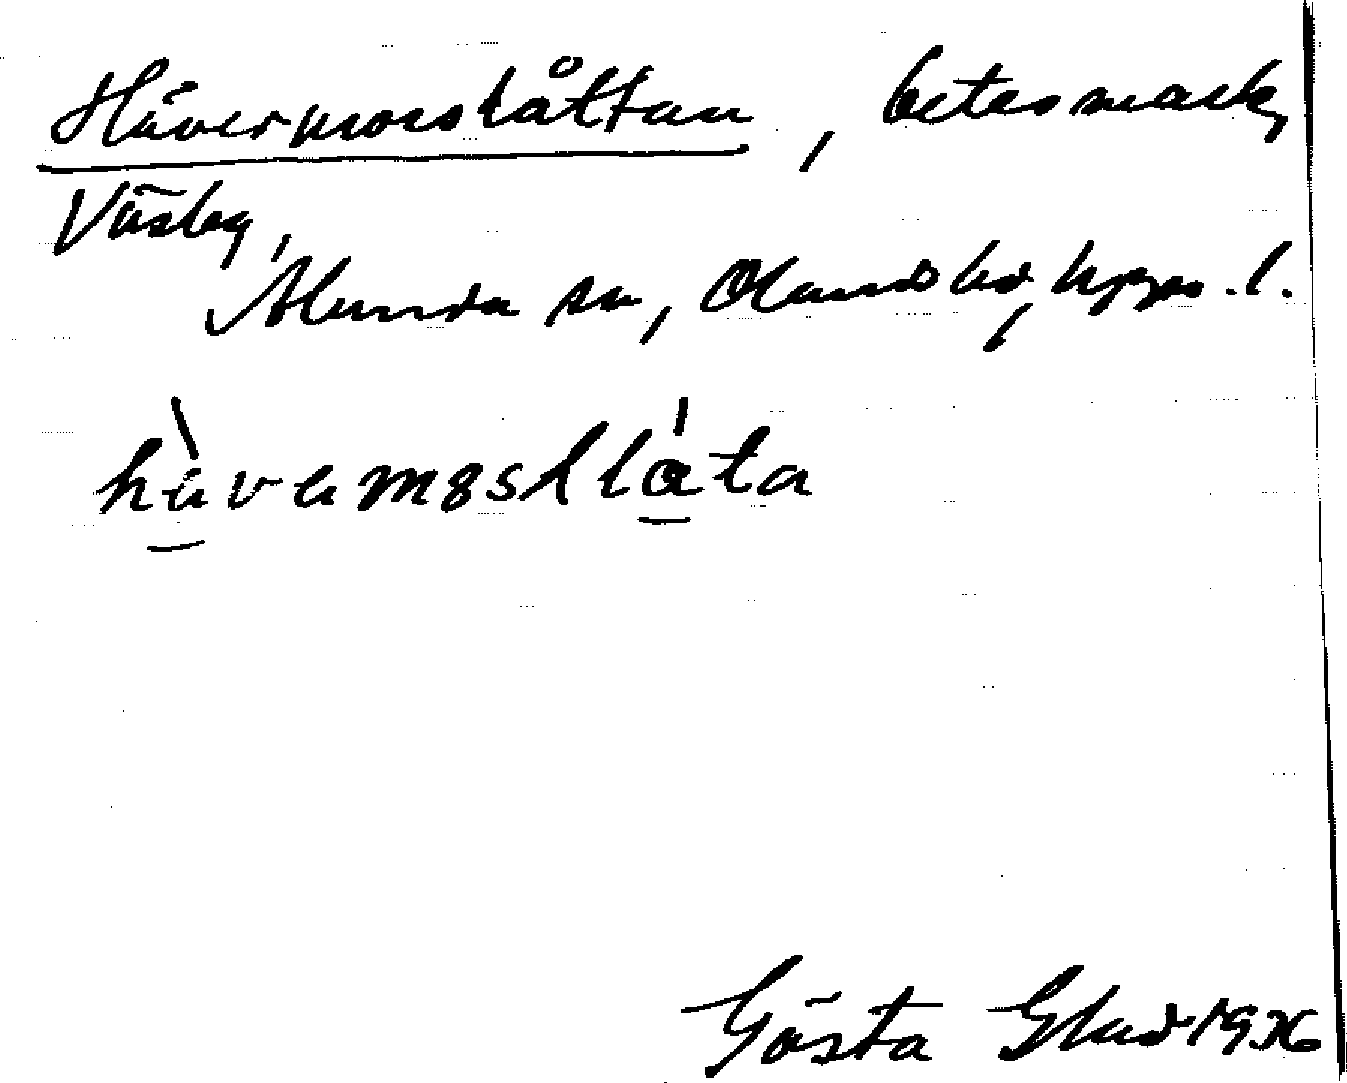 Hävermorslåttan, betesmark,
Väsby,
Alunda sn, Olands hd, Upps. l.
hàvamosslàta
Gösta Glad 1936